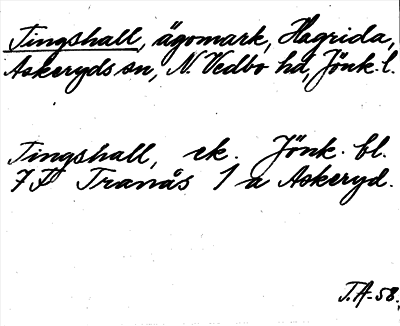 Tingshall, ägomark, Hagrida,
Askeryds sn, N. Vedbo hd, Jönk. l.
Tingshall, ek. Jönk. bl.
7F Tranås 1 a Askeryd.
T.A-58.